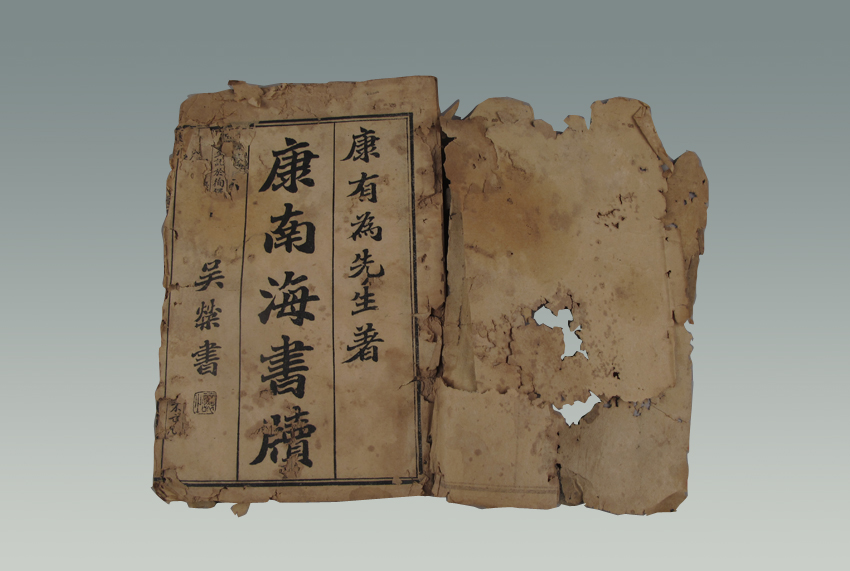 康有為先生著
康南海書牘
吳榮書